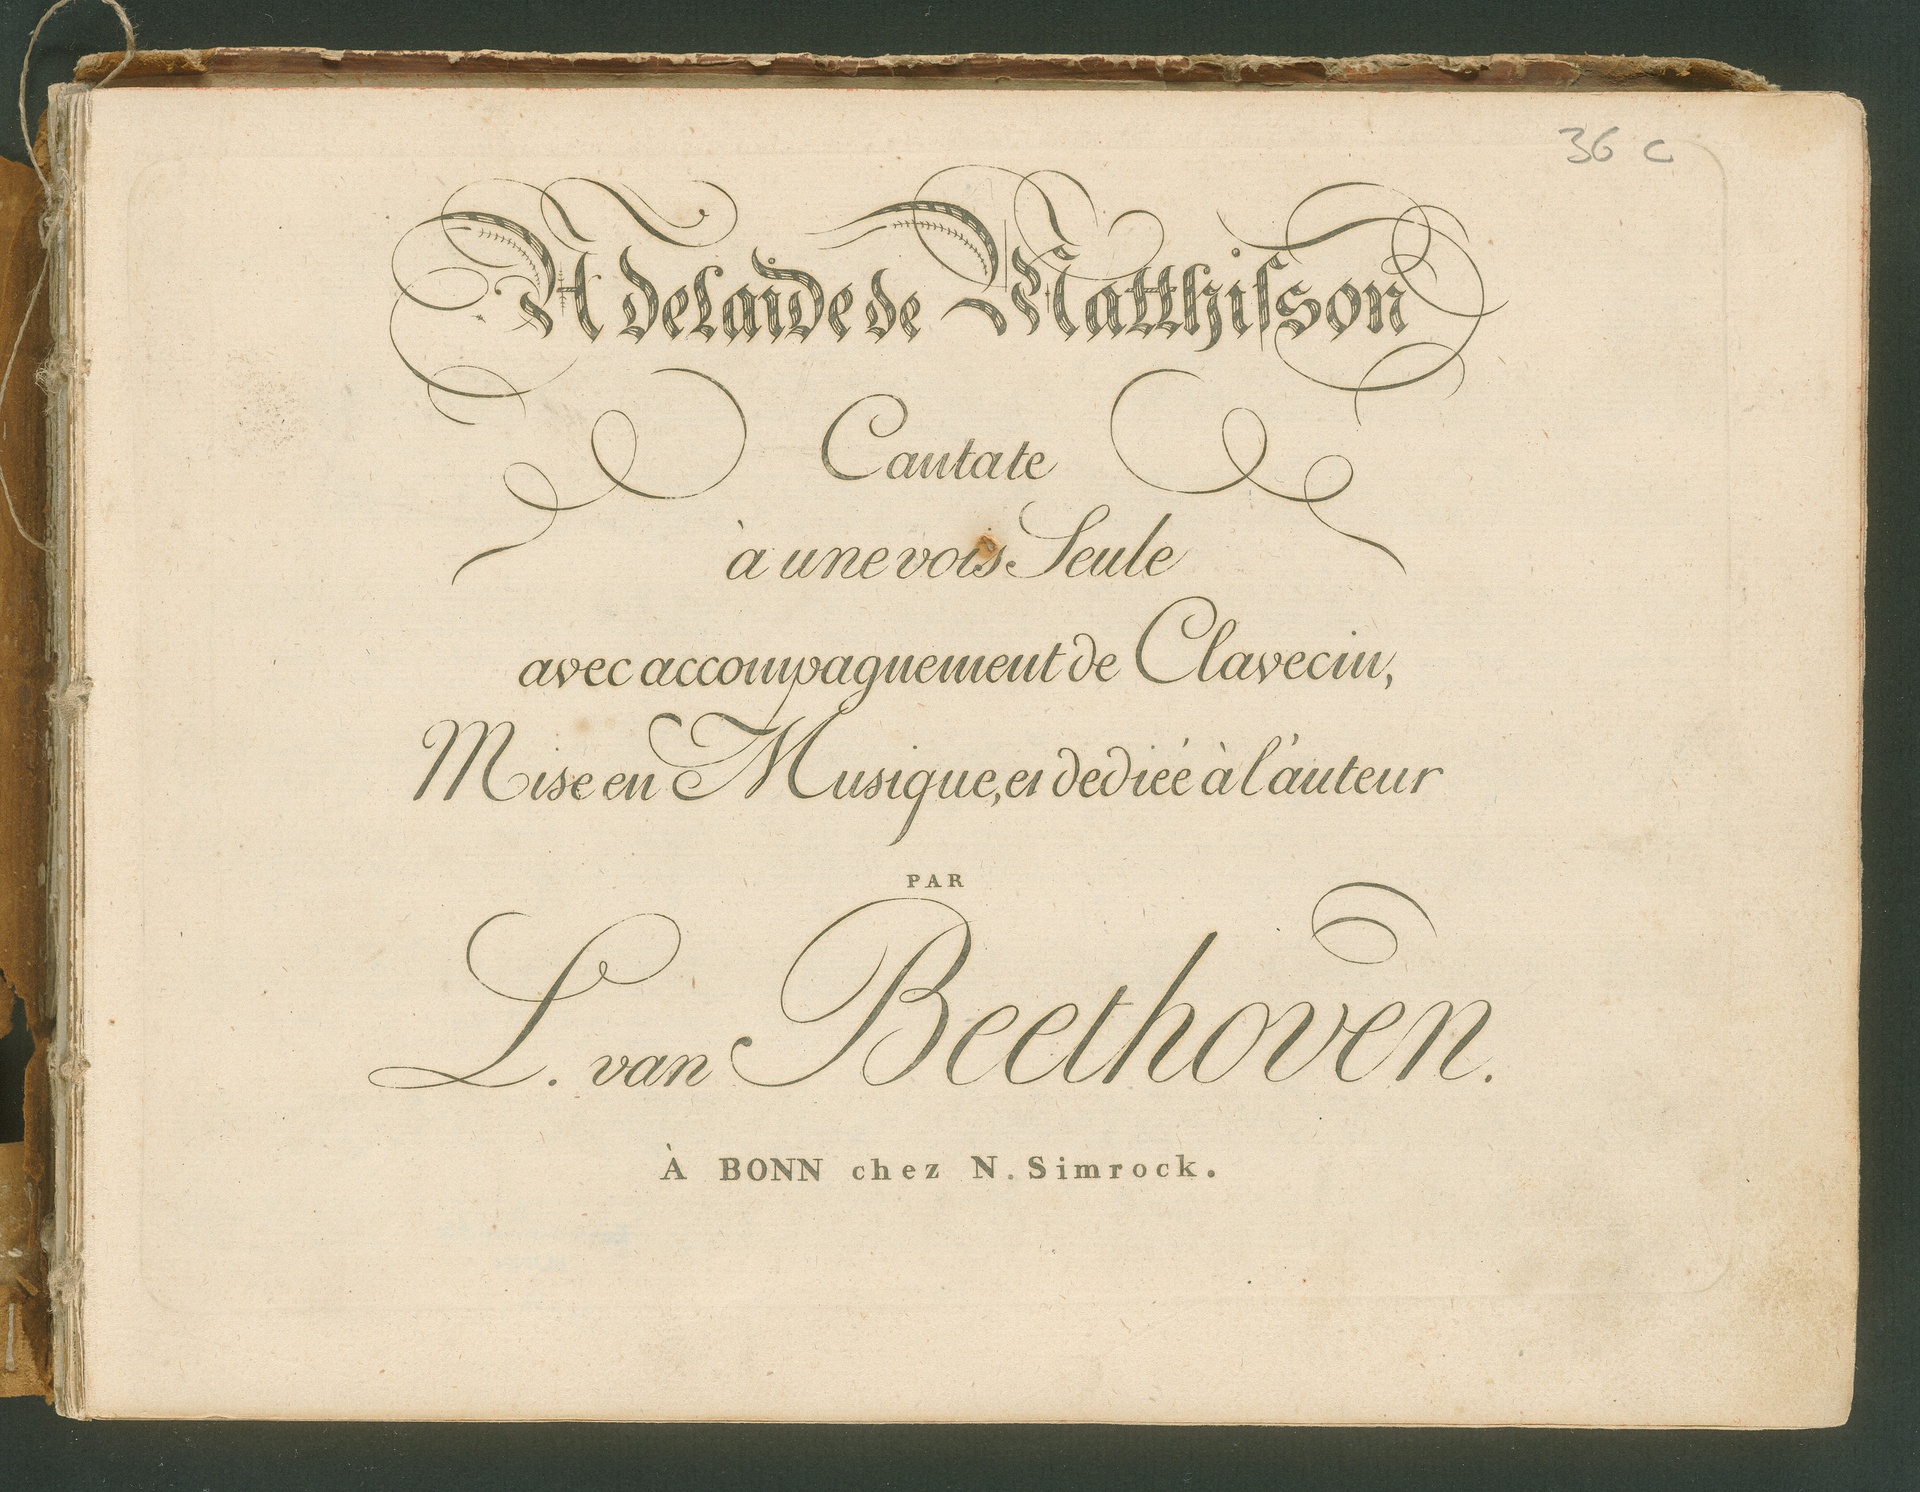 36 c
Adelaide de Matthiſson
Cantate
à une vois Seule
avec accompagnement de Clavecin,
Mise en Musique, et dediée à l'auteur
PAR
L. van Beethoven.
À BONN chez N. Simrock.